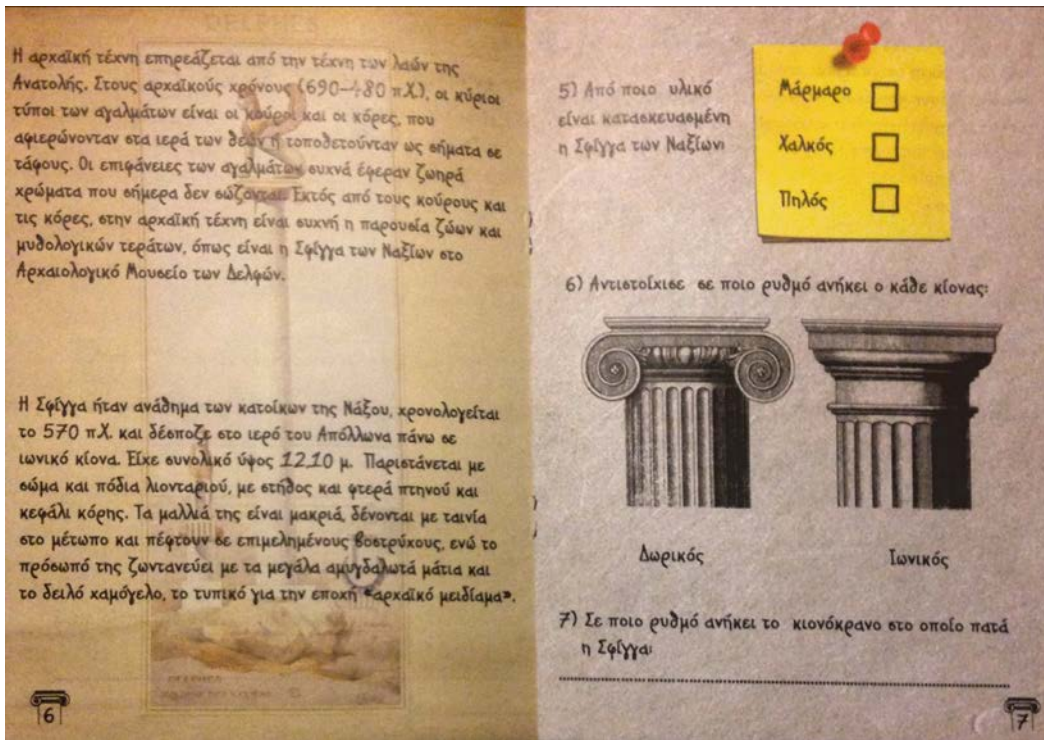 DELPHES
Η αρχαϊκή τέχνη επηρεάζεται από την τέχνη των λαών της
Ανατολής. Στους αρχαϊκούς χρόνους (690-480 π.Χ.), οι κύριοι
τύποι των αγαλμάτων είναι οι κούροι και οι κόρες, που
αφιερώνονταν στα ιερά των θεών ή τοποθετούνταν ως σήματα σε
τάφους. Οι επιφάνειες των αγαλμάτων συχνά έφεραν ζωηρά
χρώματα που σήμερα δεν σώζονται. Εκτός από τους κούρους και
τις κόρες, στην αρχαϊκή τέχνη είναι συχνή η παρουσία ζώων και
μυθολογικών τεράτων, όπως είναι η Σφίγγα των Ναξίων στο
Αρχαιολογικό Μουσείο των Δελφών.
Η Σφίγγα ήταν ανάθημα των κατοίκων της Νάξου, χρονολογείται
το 570 π.Χ. και δέσποζε στο ιερό του Απόλλωνα πάνω σε
ιωνικό κίονα. Είχε συνολικό ύψος 12,10 μ. Παριστάνεται με
σώμα και πόδια λιονταριού, με στήθος και φτερά πτηνού και
κεφάλι κόρης. Τα μαλλιά της είναι μακριά, δένονται με ταινία
στο μέτωπο και πέφτουν σε επιμελημένους βοστρύχους, ενώ το
πρόσωπό της ζωντανεύει με τα μεγάλα αμυγδαλωτά μάτια και
το δειλό χαμόγελο, το τυπικό για την εποχή «αρχαϊκό μειδίαμα».
DELPHES
6
5) Από ποιο υλικό
είναι κατασκευασμένη
η Σφίγγα των Ναξίων;
Μάρμαρο
Χαλκός
Πηλός
6) Αντιστοίχισε σε ποιο ρυθμό ανήκει ο κάθε κίονας:
Δωρικός Ιωνικός
7) Σε ποιο ρυθμό ανήκει το κιονόκρανο στο οποίο πατά
η Σφίγγα;
7